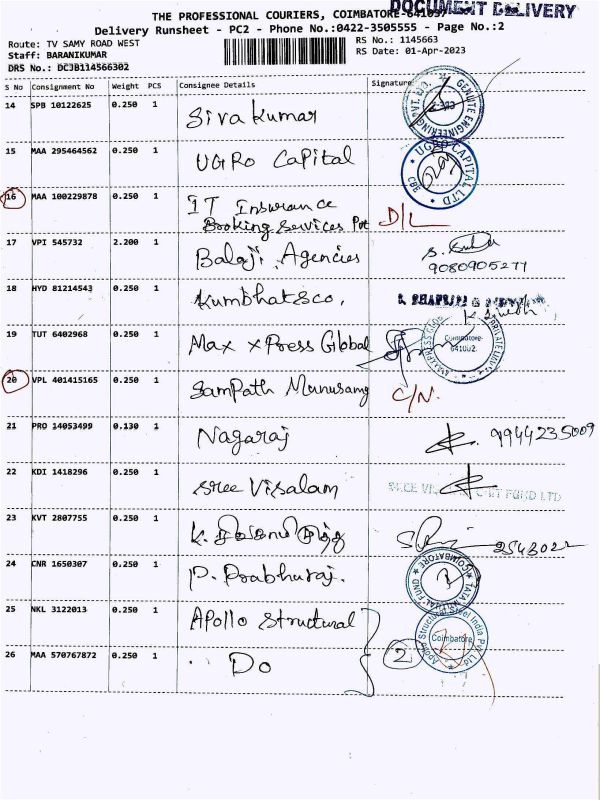 THE PROFESSIONAL COURIERS, COIMBATORE-641037
DOCUMENT DELIVERY
Delivery Runsheet - PC2 - Phone No.:0422-3505555 - Page No.:2
Route: TV SAMY ROAD WEST
RS No.: 1145663
Staff: BARANIKUMAR
RS Date: 01-Apr-2023
DRS No.: DCJB114566302
S No Consignment No Weight PCS Consignee Details Signature
14 SPB 10122625 0.250 1 Siva kumar
GENUITE ENGINEERING PVT. LTD.
15 MAA 295464562 0.250 1 UGRO Capital
UGRO CAPITAL LTD CBE
16 MAA 100229878 0.250 1 IT Insurance
Booking Services Pvt D/L
17 VPI 545732 2.200 1 Balaji Agencies
9080905277
18 HYD 81214543 0.250 1 Kumbhat&co,
19 TUT 6402968 0.250 1 Max xPress Global
Coimbatore-
641002.
20 VPL 401415165 0.250 1 Sampath Munusamy C/N.
21 PRO 14053499 0.130 1 Nagaraj 9944235009
22 KDI 1418296 0.250 1 Sree Visalam
SREE CHIT FUND LTD
23 KVT 2807755 0.250 1
24 CNR 1650307 0.250 1 P. Prabhuraj.
TATA MUTUAL FUND COIMBATORE
25 NKL 3122013 0.250 1 Apollo Structural
Apollo Structural Steel India Pvt. Ltd.
Coimbatore
26 MAA 570767872 0.250 1 '' Do
2